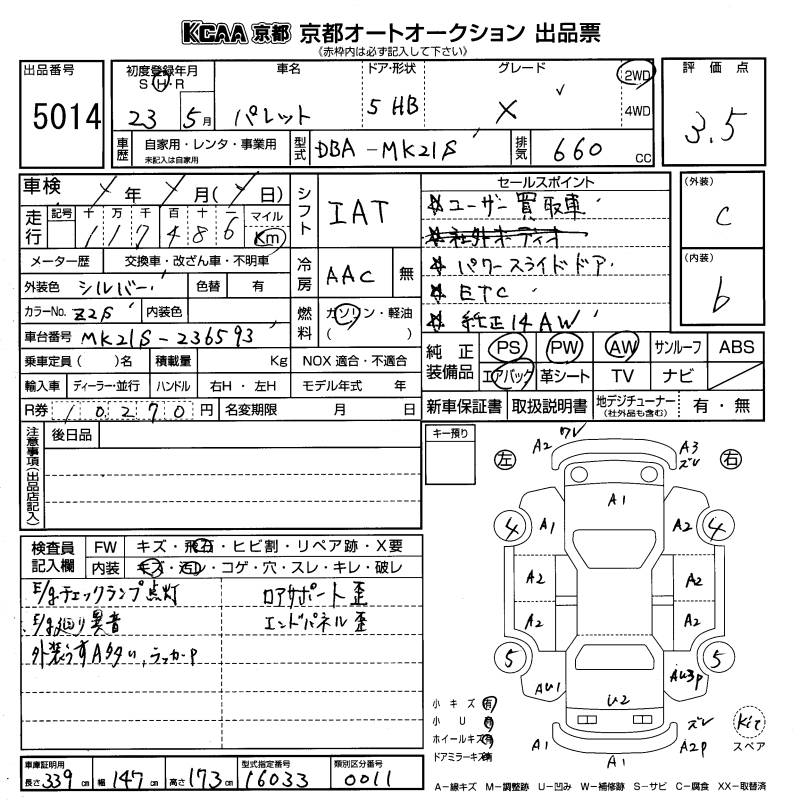 KCAA 京都 京都オートオークション 出品票
《赤枠内は必ず記入して下さい》
出品番号 5014
初度登録年月 S・H・R 23 5月
車名 パレット
ドア・形状 5 HB
グレード X
2WD
4WD
評価点 3.5
車歴 自家用・レンタ・事業用
未記入は自家用
型式 DBA-MK21S
排気 660 CC
車検 年 月( 日)
走行 記号 十 万 千 百 十 一 マイル
117486 Km
シフト IAT
セールスポイント
☆ユーザー買取車
☆社外オーディオ
☆パワースライドドア
☆ETC
☆純正14AW
(外装) C
(内装) b
メーター歴 交換車・改ざん車・不明車
冷房 AAC 無
外装色 シルバー 色替 有
カラーNo. Z2S 内装色
燃料 ガソリン・軽油
( )
車台番号 MK21S-236593
乗車定員( )名 積載量 Kg NOX 適合・不適合
輸入車 ディーラー・並行 ハンドル 右H・左H モデル年式 年
R券 10270円 名変期限 月 日
純正装備品 PS PW AW サンルーフ ABS
エアバッグ 革シート TV ナビ
新車保証書 取扱説明書 地デジチューナー(社外品も含む) 有・無
注意事項(出品店記入) 後日品
キー預り
左 右
A2 ワレ A3 ズレ
A1
4 A1 A2 4
A2 A2
A2 A2
5 5
AU1 AU3P
U2
A1 A1 A2P ズレ
Kit
スペア
小キズ 有
小U 有
ホイールキズ 有
ドアミラーキズ 有
検査員記入欄 FW キズ・飛石・ヒビ割・リペア跡・X要
内装 キズ・汚レ・コゲ・穴・スレ・キレ・破レ
E/gチェックランプ点灯 ロアサポート歪
E/g廻り異音 エンドパネル歪
外装うすA多い,ラッカーP
車庫証明用 長さ 339cm 幅 147cm 高さ 173cm 型式指定番号 16033 類別区分番号 0011
A-線キズ M-調整跡 U-凹み W-補修跡 S-サビ C-腐食 XX-取替済